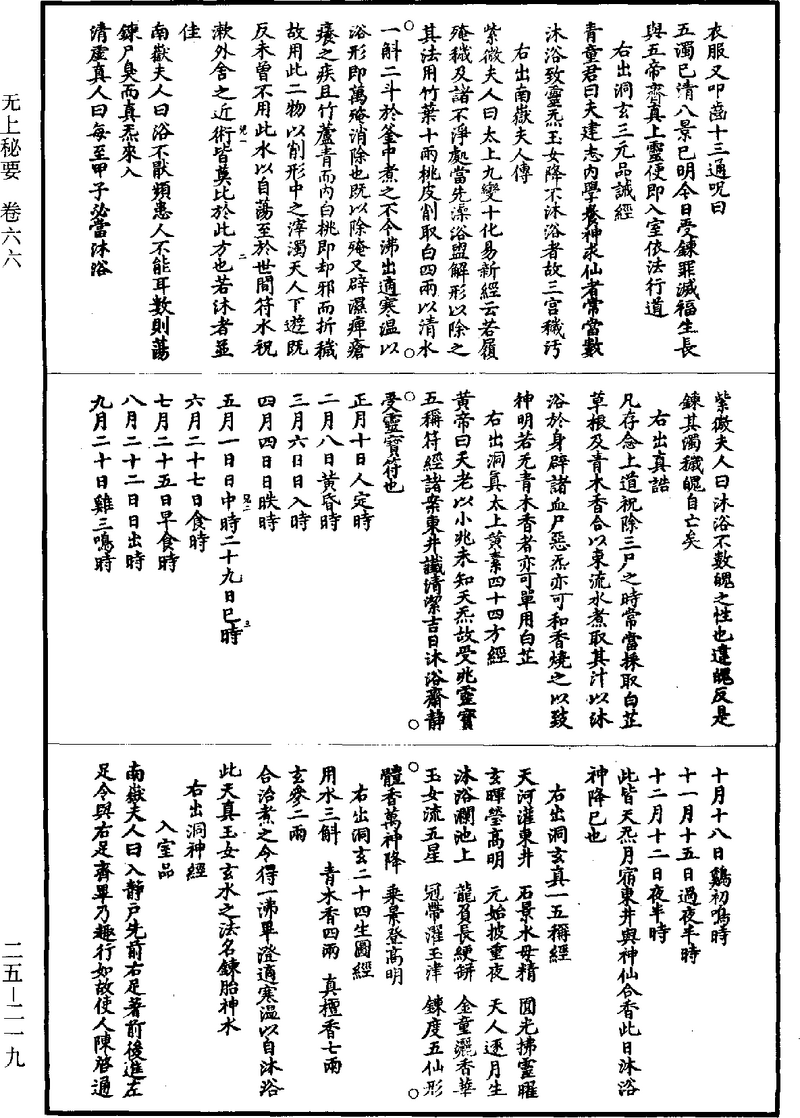 无上秘要　卷六六
二五—二一九
衣服又叩齒十三通呪曰
五濁已清八景已明今日受鍊罪滅福生長
與五帝齋真上靈便即入室依法行道
右出洞玄三元品誡經
青童君曰夫建志內學養神求仙者常當數
沐浴致靈炁玉女降不沐浴者故三宮穢污
右出南嶽夫人傳
紫微夫人曰太上九變十化易新經云若履
殗穢及諸不淨處當先澡浴盥解形以除之
其法用竹葉十兩桃皮削取白四兩以清水
一斛二斗於釜中煮之不令沸出適寒溫以
浴形即萬殗消除也既以除殗又辟濕痺瘡
癢之疾且竹蘆青而內白桃即却邪而折穢
故用此二物以削形中之滓濁天人下遊既
反未曾不用此水以自蕩至於世間符水祝
漱外舍之近術皆莫比於此方也若沐者並
佳
南嶽夫人曰浴不猒頻患人不能耳數則蕩
鍊尸臭而真炁來入
清虛真人曰每至甲子必當沐浴
紫微夫人曰沐浴不數魄之性也違魄反是
鍊其濁穢魄自亡矣
右出真誥
凡存念上道祝除三尸之時常當採取白芷
草根及青木香合以東流水煮取其汁以沐
浴於身辟諸血尸惡炁亦可和香燒之以致
神明若无青木香者亦可單用白芷
右出洞真太上黃素四十四方經
黃帝曰天老以小兆未知天炁故受兆靈寶
五稱符經諸案東井讖清潔吉日沐浴齋靜
受靈寶符也
正月十日人定時
二月八日黃昏時
三月六日日入時
四月四日日昳時
五月一日日中時二十九日巳時
六月二十七日食時
七月二十五日早食時
八月二十二日日出時
九月二十日雞三鳴時
十月十八日鷄初鳴時
十一月十五日過夜半時
十二月十二日夜半時
此皆天炁月宿東井與神仙合香此日沐浴
神降己也
右出洞玄真一五稱經
天河灌東井　石景水母精　圓光拂靈曜
玄暉瑩高明　元始披重夜　天人逐月生
沐浴瀾池上　龍負長綆缾　金童灑香華
玉女流五星　冠帶濯玉津　鍊度五仙形
體香萬神降　乘景登高明
右出洞玄二十四生圖經
用水三斛　青木香四兩　真檀香七兩
玄參二兩
合治煮之令得一沸畢澄適寒溫以自沐浴
此天真玉女玄水之法名鍊胎神水
右出洞神經
入室品
南嶽夫人曰入靜戶先前右足著前後進左
足令與右足齊畢乃趣行如故使人陳啓通